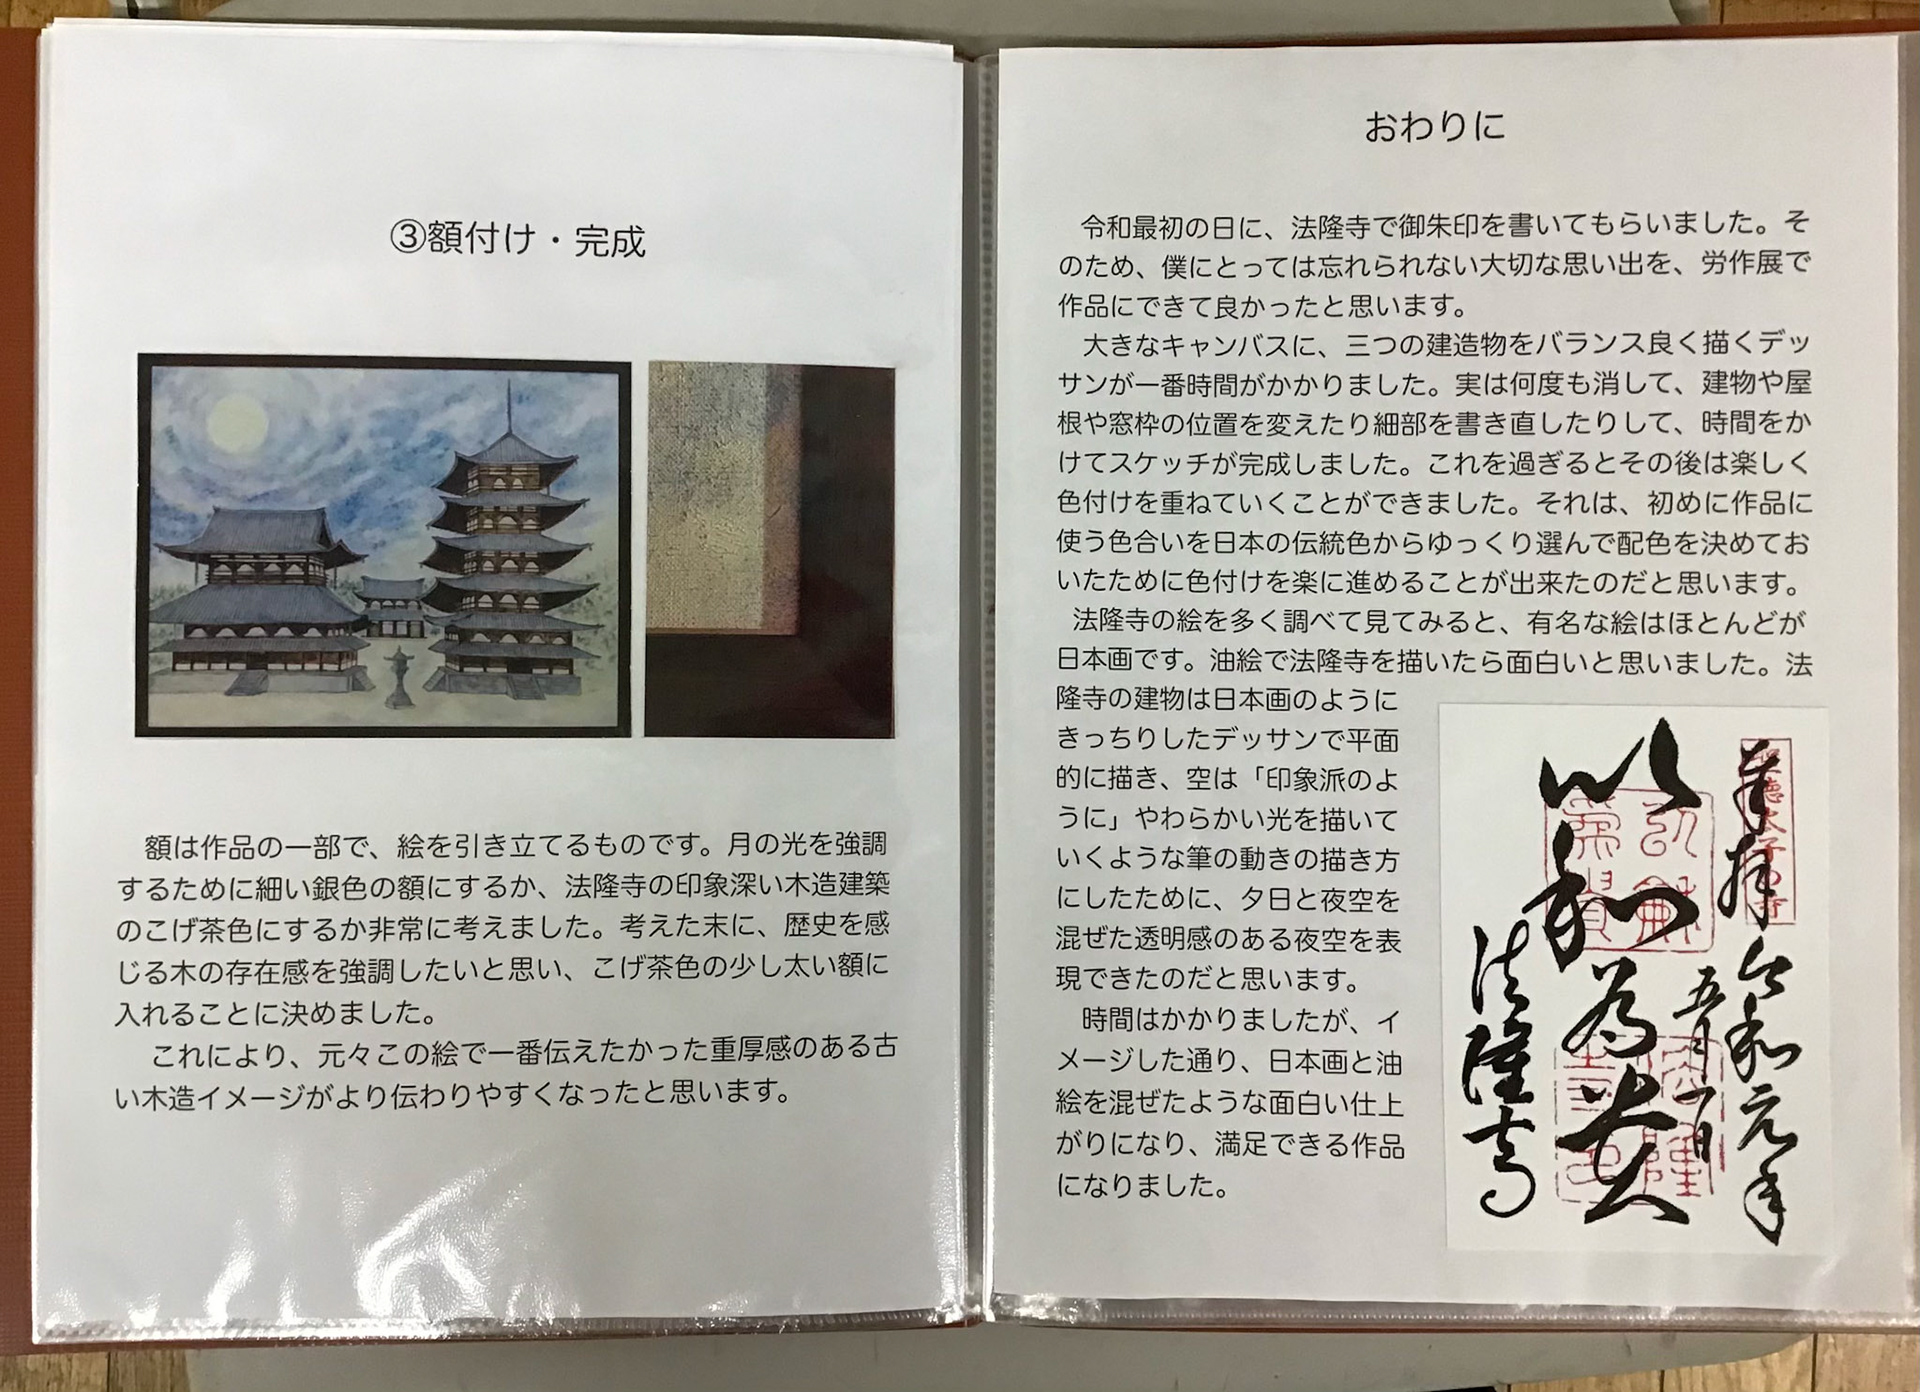 ③額付け・完成
額は作品の一部で、絵を引き立てるものです。月の光を強調
するために細い銀色の額にするか、法隆寺の印象深い木造建築
のこげ茶色にするか非常に考えました。考えた末に、歴史を感
じる木の存在感を強調したいと思い、こげ茶色の少し太い額に
入れることに決めました。
これにより、元々この絵で一番伝えたかった重厚感のある古
い木造イメージがより伝わりやすくなったと思います。
おわりに
令和最初の日に、法隆寺で御朱印を書いてもらいました。そ
のため、僕にとっては忘れられない大切な思い出を、労作展で
作品にできて良かったと思います。
大きなキャンバスに、三つの建造物をバランス良く描くデッ
サンが一番時間がかかりました。実は何度も消して、建物や屋
根や窓枠の位置を変えたり細部を書き直したりして、時間をか
けてスケッチが完成しました。これを過ぎるとその後は楽しく
色付けを重ねていくことができました。それは、初めに作品に
使う色合いを日本の伝統色からゆっくり選んで配色を決めてお
いたために色付けを楽に進めることが出来たのだと思います。
法隆寺の絵を多く調べて見てみると、有名な絵はほとんどが
日本画です。油絵で法隆寺を描いたら面白いと思いました。法
隆寺の建物は日本画のように
きっちりしたデッサンで平面
的に描き、空は「印象派のよ
うに」やわらかい光を描いて
いくような筆の動きの描き方
にしたために、夕日と夜空を
混ぜた透明感のある夜空を表
現できたのだと思います。
時間はかかりましたが、イ
メージした通り、日本画と油
絵を混ぜたような面白い仕上
がりになり、満足できる作品
になりました。
奉拝 令和元年
五月一日
以和為貴
法隆寺